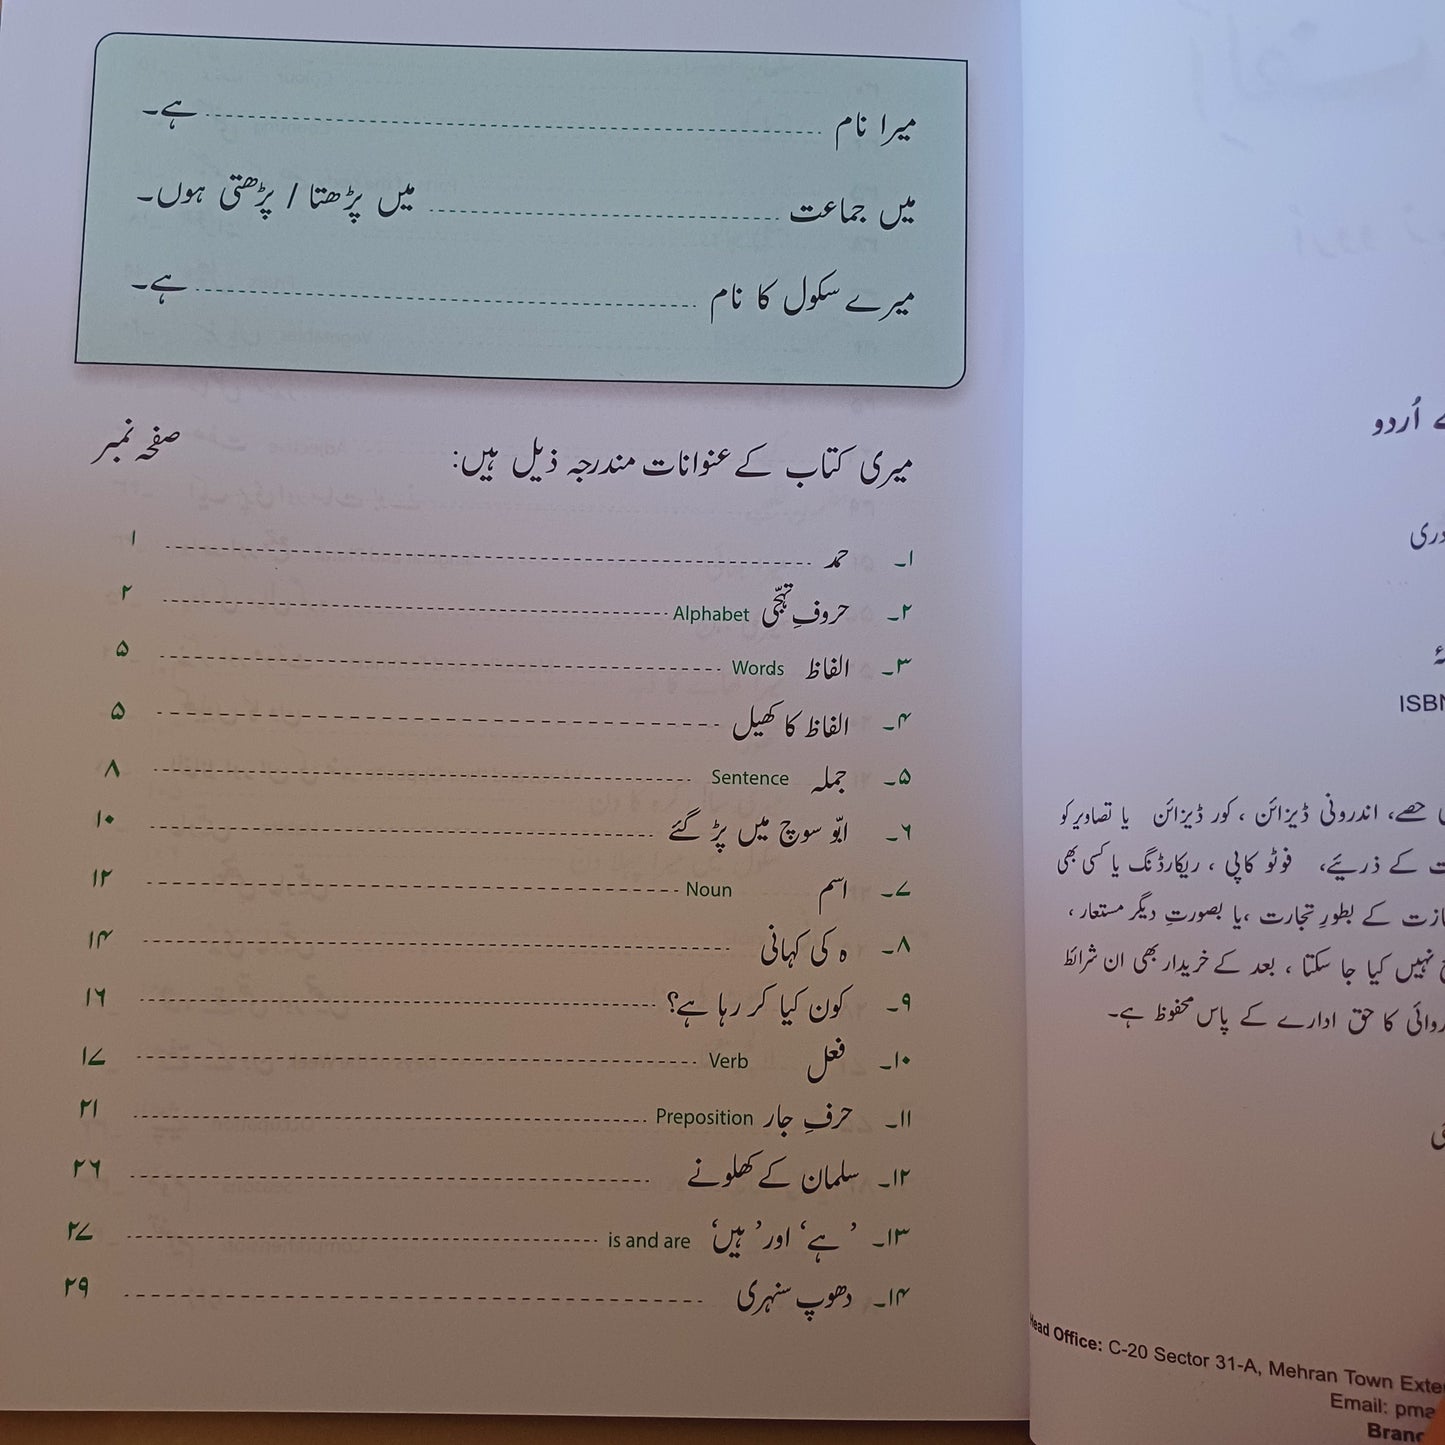 میرا نام ........................ ہے۔
میں جماعت ........................ میں پڑھتا / پڑھتی ہوں۔
میرے سکول کا نام ........................ ہے۔
میری کتاب کے عنوانات مندرجہ ذیل ہیں: صفحہ نمبر
۱۔ حمد ۱
۲۔ حروفِ تہجّی Alphabet ۲
۳۔ الفاظ Words ۵
۴۔ الفاظ کا کھیل ۵
۵۔ جملہ Sentence ۸
۶۔ ابّو سوچ میں پڑ گئے ۱۰
۷۔ اسم Noun ۱۲
۸۔ ہ کی کہانی ۱۴
۹۔ کون کیا کر رہا ہے؟ ۱۶
۱۰۔ فعل Verb ۱۷
۱۱۔ حرفِ جار Preposition ۲۱
۱۲۔ سلمان کے کھلونے ۲۶
۱۳۔ ’ہے‘ اور ’ہیں‘ is and are ۲۷
۱۴۔ دھوپ سنہری ۲۹
اُردو
ISBN
حصے، اندرونی ڈیزائن ، کور ڈیزائن یا تصاویر کو
کے ذریئے، فوٹو کاپی ، ریکارڈنگ یا کسی بھی
کے بطورِ تجارت ،یا بصورتِ دیگر مستعار ،
نہیں کیا جا سکتا ، بعد کے خریدار بھی ان شرائط
کا حق ادارے کے پاس محفوظ ہے۔
Head Office: C-20 Sector 31-A, Mehran Town
Email: